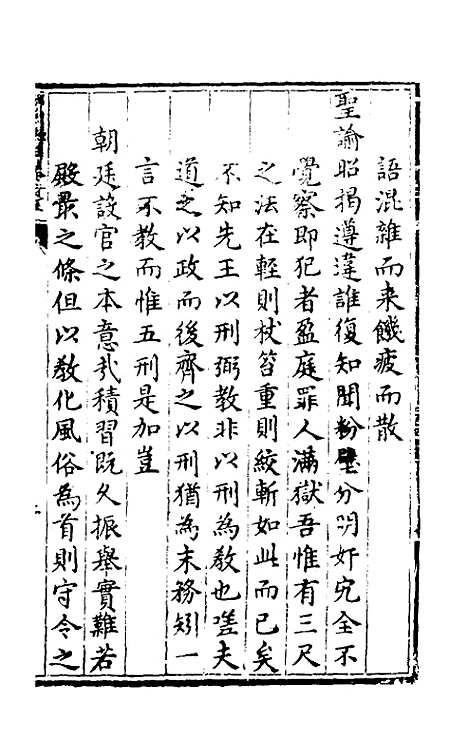 語混雜而来饑疲而散
聖諭昭揭遵違誰復知聞粉壁分明奸宄全不
覺察即犯者盈庭罪人滿獄吾惟有三尺
之法在輕則杖笞重則絞斬如此而已矣
不知先王以刑弼教非以刑為教也嗟夫
道之以政而後齊之以刑猶為末務矧一
言不教而惟五刑是加豈
朝廷設官之本意哉積習既久振舉實難若
殿最之條但以教化風俗為首則守令之